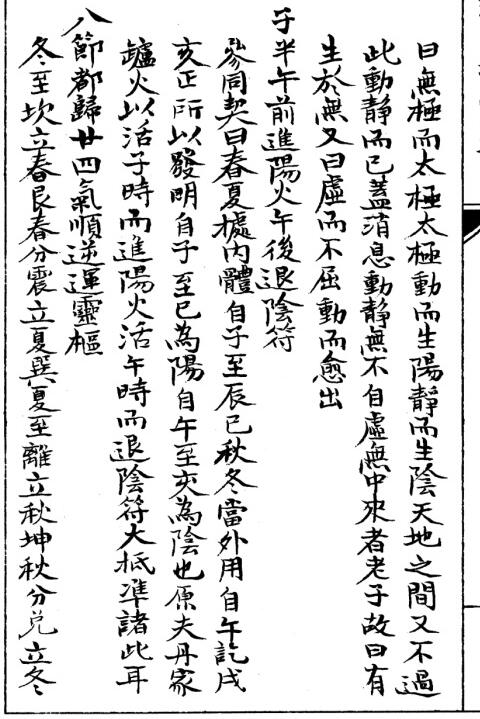 曰無極而太極太極動而生陽靜而生陰天地之間又不過
此動靜而已蓋消息動靜無不自虛無中來者老子故曰有
生於無又曰虛而不屈動而愈出
子半午前進陽火午後退陰符
參同契曰春夏㯫內體自子至辰巳秋冬當外用自午訖戌
亥正所以發明自子至巳為陽自午至亥為陰也原夫丹家
鑪火以活子時而進陽火活午時而退陰符大抵準諸此耳
八節都歸廿四氣順逆運靈樞
冬至坎立春艮春分震立夏巽夏至離立秋坤秋分兌立冬